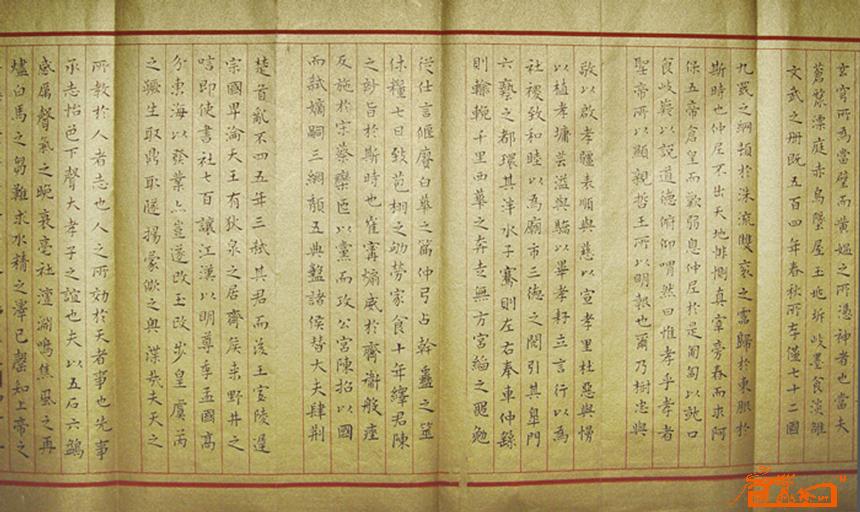 玄宫所為當璧而黃媼之所憑神者也當夫
蒼籙漂庭赤烏墮屋玉兆坼岐墨食淡雒
文武之冊既五百四年春秋所存僅七十二國
九罭之綱頹於洙流雙袞之雷歸於東服於
斯時也仲尼不出天地悱惻真宰旁吞而求阿
保五帝倉皇而歎弱息仲尼於是匍匐以就口
食岐嶷以說道德俯仰喟然曰惟孝乎孝者
聖帝所以顯親哲王所以明報也爾乃樹忠與
敬以啟孝疆表順與慈以宣孝里杜惡與慢
以植孝墉芸溢與驕以畢孝籽立言行以為
社稷致和睦以為廟市三德之閎引其皋門
六藝之都環其泮水子騫則左右奉車仲繇
則輪輓千里西華之奔走無方宮縚之黽勉
從仕言偃廢白華之篇仲弓占幹蠱之筮
休糧七日致苞栩之劬勞家食十年繹君陳
之妙旨於斯時也崔甯煽威於齊衛般瘞
反施於宋蔡欒匹以黨而攻公宮陳招以國
而試嫡嗣三綱頹五典盤諸侯替大夫肆荆
楚首亂不四五年三弒其君而後王室陵遲
宗國卑淪天王有狄泉之居齊侯來野井之
唁即使書社七百讓江漢以明尊季孟國高
分東海以發業亦豈遂改玉改步皇虞芮
之蹶生取鼎取隧揚蒙倛之與渫哉夫天之
所教於人者志也人之所効於天者事也先事
承志怡色下聲大孝子之誼也夫以五石六鷁
感屬聲氣之晚衰亳社澶淵鳴焦風之再
爐白馬之芻難求水精之澤已罄知上帝之